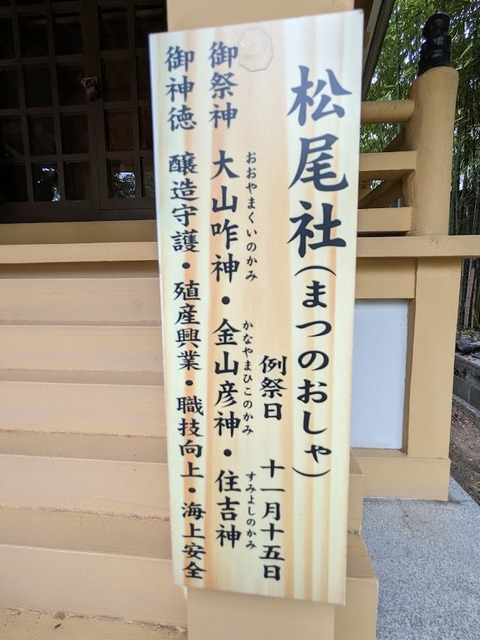 松尾社(まつのおしゃ)
例祭日 十一月十五日
おおやまくいのかみ かなやまひこのかみ すみよしのかみ
御祭神 大山咋神・金山彦神・住吉神
御神徳 醸造守護・殖産興業・職技向上・海上安全